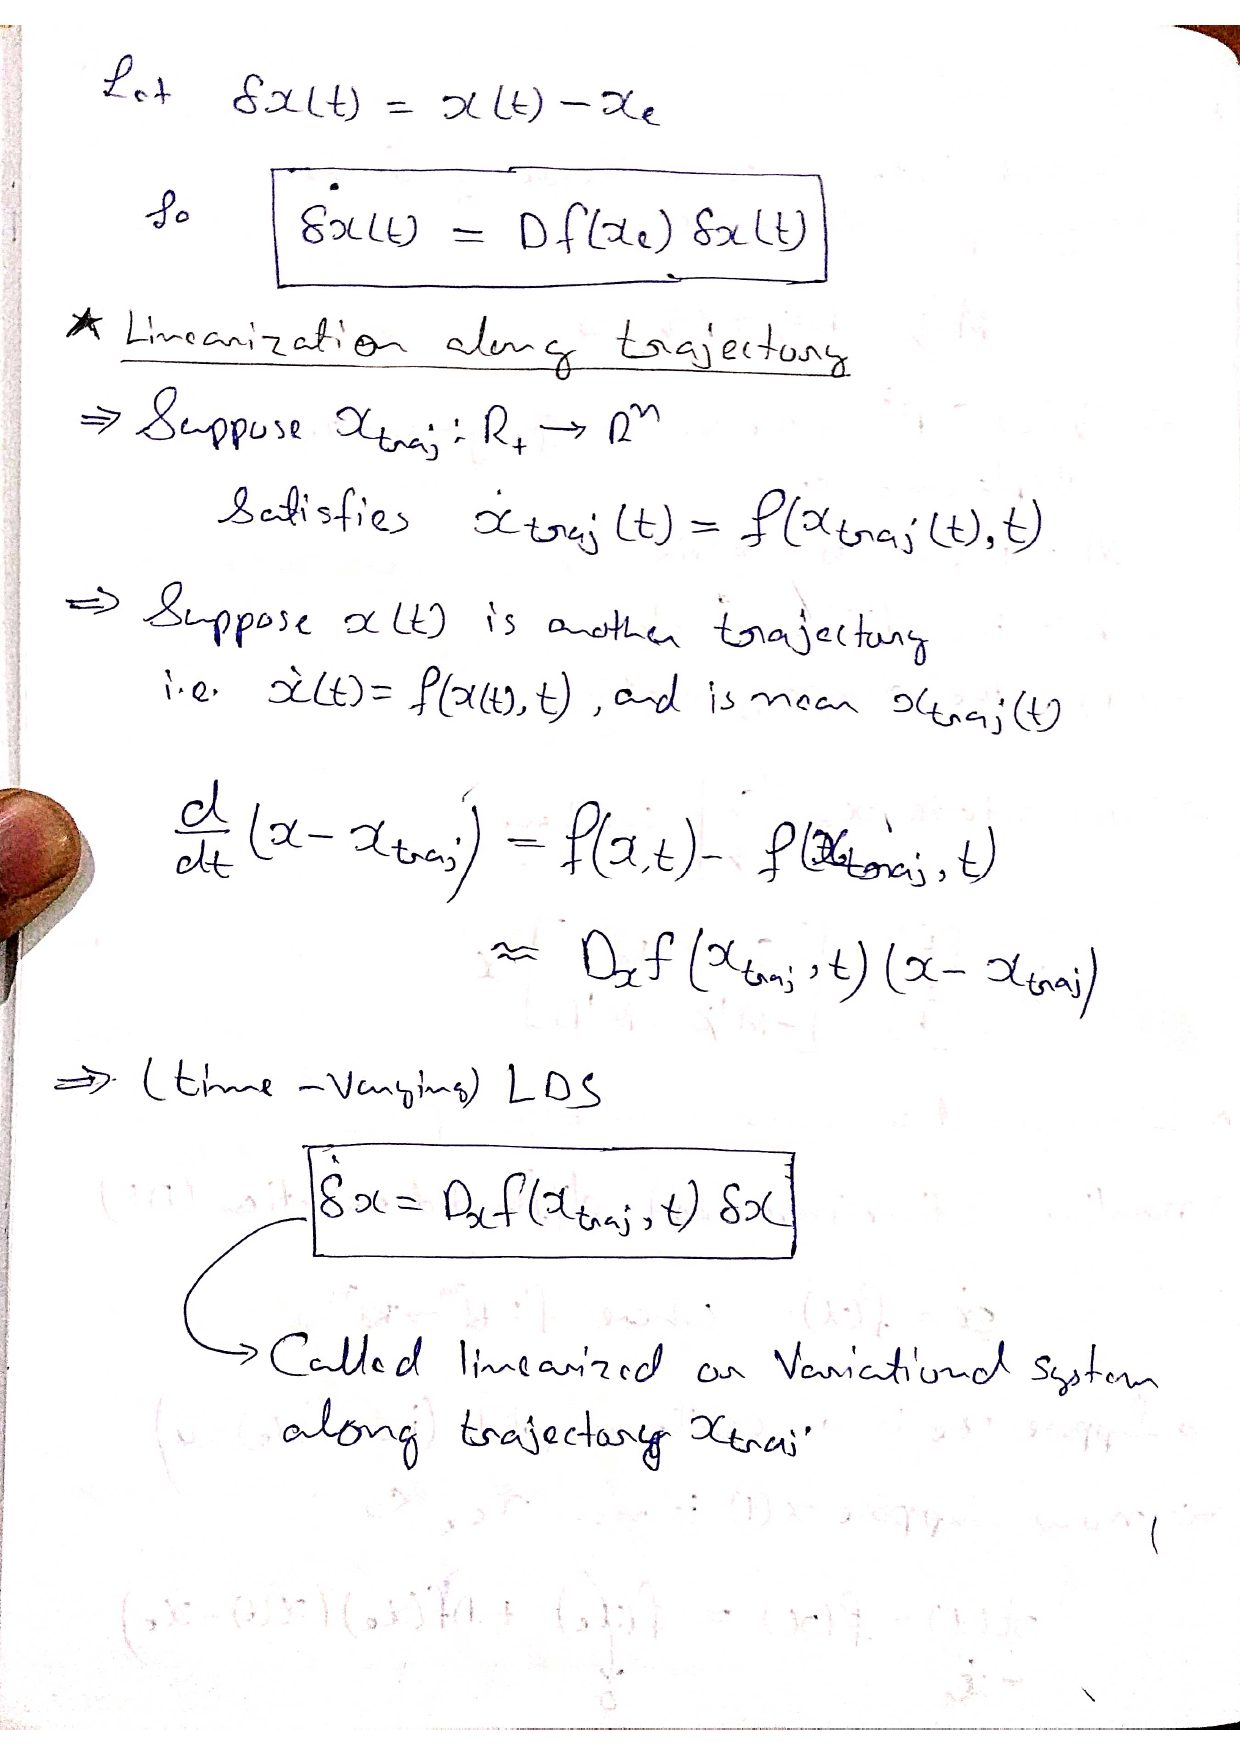 Let δx(t) = x(t) − xₑ
So δẋ(t) = Df(xₑ) δx(t)
★ Linearization along trajectory
⇒ Suppose x_traj : R₊ → Rⁿ
Satisfies ẋ_traj(t) = f(x_traj(t), t)
⇒ Suppose x(t) is another trajectory
i.e. ẋ(t) = f(x(t), t), and is near x_traj(t)
d/dt (x − x_traj) = f(x,t) − f(x_traj, t)
≈ Dₓf(x_traj, t)(x − x_traj)
⇒ (time-varying) LDS
δẋ = Dₓf(x_traj, t) δx
→ Called linearized or variational system
along trajectory x_traj